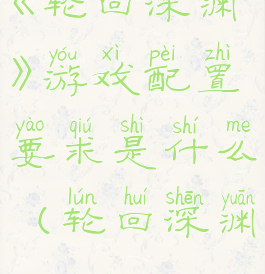 《轮回深渊
yóu xì pèi zhì
》游戏配置
yào qiú shì shí me
要求是什么
lún huí shēn yuān
(轮回深渊